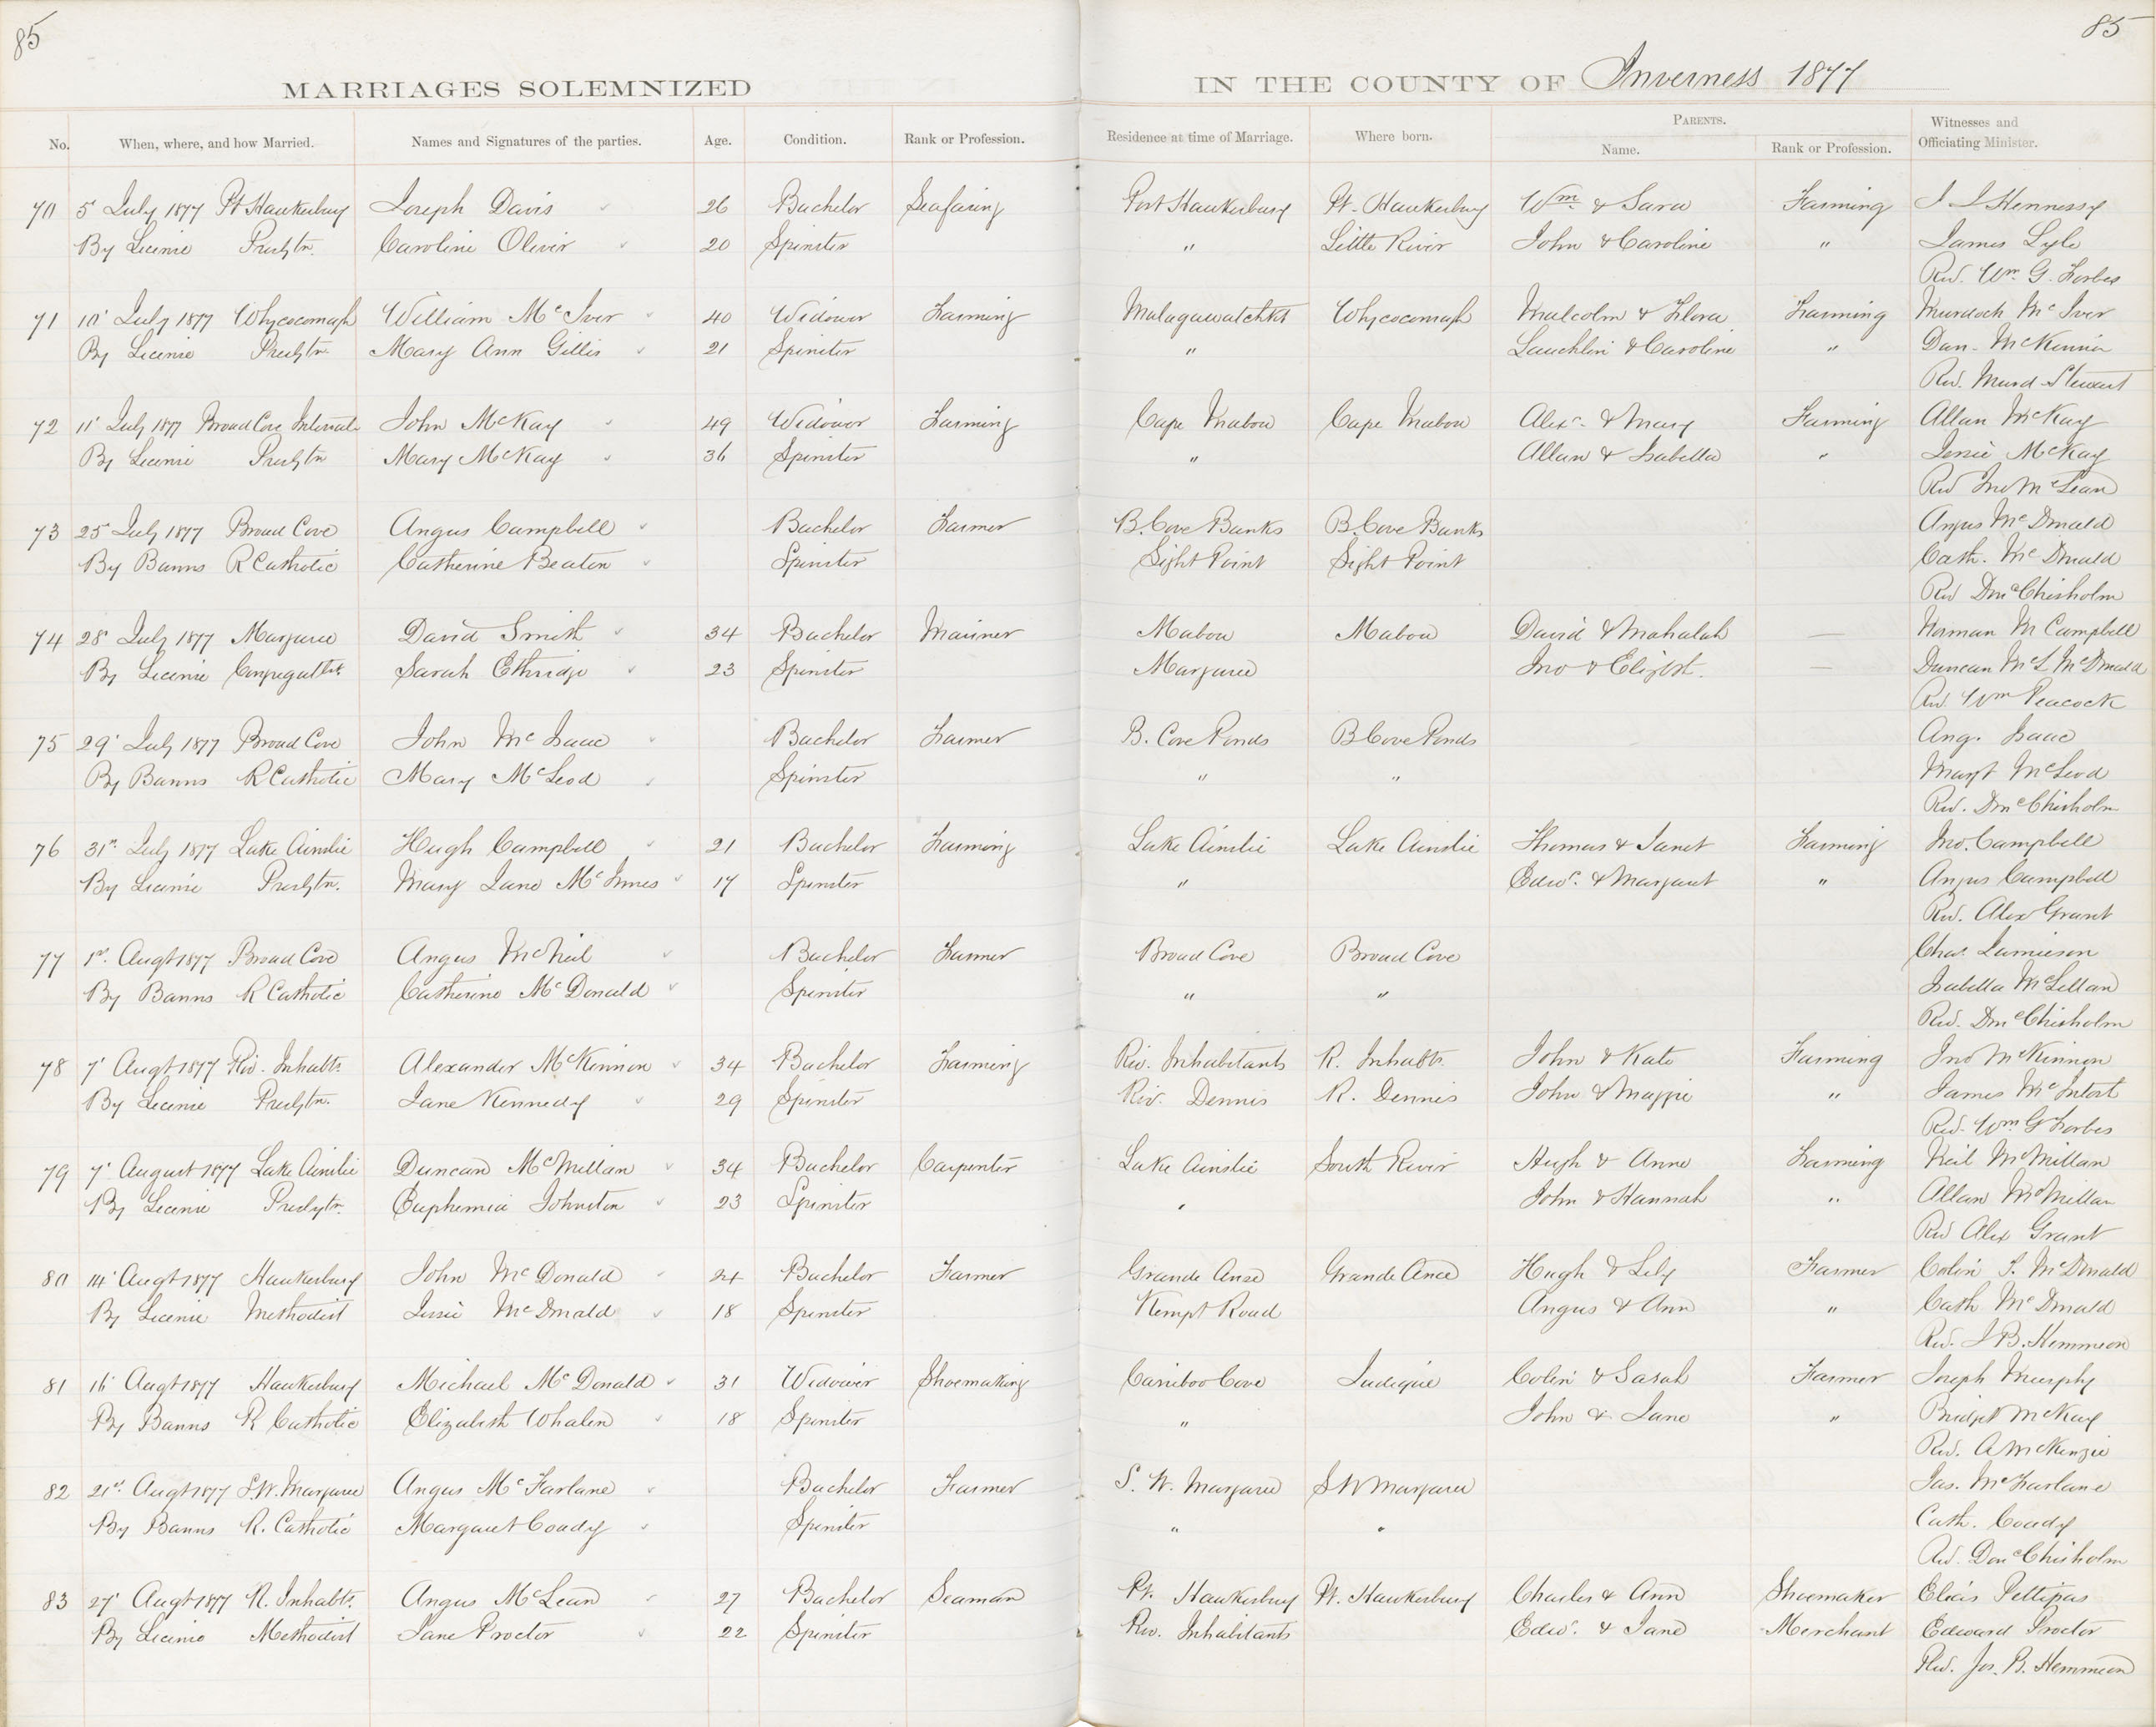 85
85
MARRIAGES SOLEMNIZED IN THE COUNTY OF Inverness 1877
No. When, where, and how Married. Names and Signatures of the parties. Age. Condition. Rank or Profession. Residence at time of Marriage. Where born. PARENTS. Name. Rank or Profession. Witnesses and Officiating Minister.
70 5' July 1877 Pt Hawkesbury Joseph Davis 26 Bachelor Seafaring Port Hawkesbury Pt. Hawkesbury Wm. & Sara Farming J J Hennessy
By License Presbytn. Caroline Oliver 20 Spinster " Little River John & Caroline " James Lyle
Rev. Wm. G. Forbes
71 10' July 1877 Whycocomagh William McIver 40 Widower Farming Malagawatchkt Whycocomagh Malcolm & Flora Farming Murdoch McIver
By License Presbytn. Mary Ann Gillis 21 Spinster " Lauchlin & Caroline " Dan. McKinnon
Rev. Murd Stewart
72 11' July 1877 Broad Cove Intervale John McKay 49 Widower Farming Cape Mabou Cape Mabou Alexr. & Mary Farming Allan McKay
By License Presbytn Mary McKay 36 Spinster " Allan & Isabella " Jessie McKay
Rev Jno McLean
73 25' July 1877 Broad Cove Angus Campbell Bachelor Farmer B. Cove Banks B. Cove Banks Angus McDonald
By Banns R Catholic Catherine Beaton Spinster Sight Point Sight Point Cath. McDonald
Rev Dn Chisholm
74 28' July 1877 Margaree David Smith 34 Bachelor Mariner Mabou Mabou David & Mahalah — Norman M Campbell
By License Congregatlst. Sarah Ethridge 23 Spinster Margaree Jno & Elizbt. — Duncan McL McDonald
Rev. Wm Peacock
75 29' July 1877 Broad Cove John McIsaac Bachelor Farmer B. Cove Ponds B Cove Ponds Ang. Isaac
By Banns R Catholic Mary McLeod Spinster " " Margt McLeod
Rev. Dn Chisholm
76 31st. July 1877 Lake Ainslie Hugh Campbell 21 Bachelor Farming Lake Ainslie Lake Ainslie Thomas & Janet Farming Jno. Campbell
By License Presbytn. Mary Jane McInnes 17 Spinster " Edwd. & Margaret " Angus Campbell
Rev. Alex Grant
77 1st. Augt 1877 Broad Cove Angus McNeil Bachelor Farmer Broad Cove Broad Cove Chas. Jamieson
By Banns R Catholic Catherine McDonald Spinster " " Isabella McLellan
Rev. Dn Chisholm
78 7' Augt 1877 Riv. Inhabts. Alexander McKinnon 34 Bachelor Farming Riv. Inhabitants R. Inhabts. John & Kate Farming Jno McKinnon
By License Presbytn. Jane Kennedy 29 Spinster Riv. Dennis R. Dennis John & Maggie " James McIntost
Rev. Wm G Forbes
79 7' August 1877 Lake Ainslie Duncan McMillan 34 Bachelor Carpenter Lake Ainslie South River Hugh & Anne Farming Neil McMillan
By License Presbytn. Euphemia Johnston 23 Spinster " John & Hannah " Allan McMillan
Rev Alex Grant
80 14' Augt 1877 Hawkesbury John McDonald 24 Bachelor Farmer Grande Anse Grande Ance Hugh & Lily Farmer Colin S. McDonald
By License Methodist Jessie McDonald 18 Spinster Kempt Road Angus & Ann " Cath McDonald
Rev. J B. Hemmeon
81 16' Augt 1877 Hawkesbury Michael McDonald 31 Widower Shoemaking Cariboo Cove Judique Colin & Sarah Farmer Joseph Murphy
By Banns R Catholic Elizabeth Whalen 18 Spinster " John & Jane " Bridget McKay
Rev. A McKenzie
82 21st. Augt 1877 S.W. Margaree Angus McFarlane Bachelor Farmer S. W. Margaree S W Margaree Jas. McFarlane
By Banns R. Catholic Margaret Coady Spinster " " Cath. Coady
Rev. Dn Chisholm
83 27' Augt 1877 R. Inhabts. Angus McLean 27 Bachelor Seaman Pt. Hawkesbury Pt. Hawkesbury Charles & Ann Shoemaker Elias Pettipas
By License Methodist Jane Proctor 22 Spinster Riv. Inhabitants Edwd. & Jane Merchant Edward Proctor
Rev. Jos. B. Hemmeon